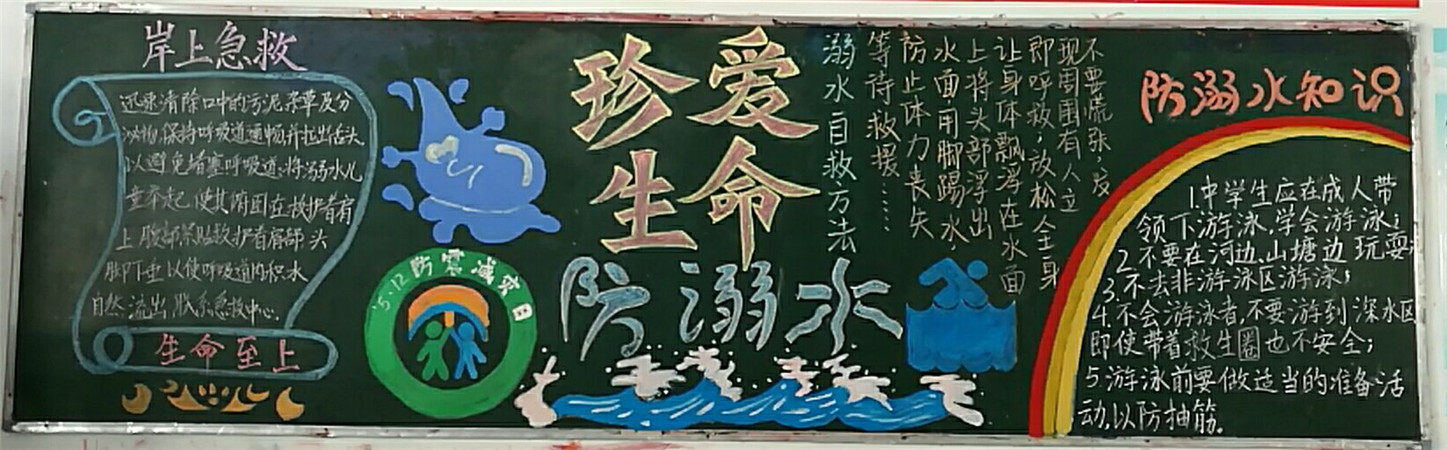 岸上急救
迅速清除口中的污泥杂草及分
泌物,保持呼吸道通畅,并拉出舌头
以避免堵塞呼吸道;将溺水儿
童举起使其俯卧在救护者肩
上腹部紧贴救护者肩部头
脚下垂以使呼吸道内积水
自然流出,联系急救中心.
生命至上
5.12防震减灾日
珍爱
生命
防溺水
溺水自救方法
不要慌张,发
现周围有人立
即呼救,放松全身
让身体飘浮在水面
上将头部浮出
水面,用脚踢水,
防止体力丧失
等待救援……
防溺水知识
1.中学生应在成人带
领下游泳,学会游泳;
2.不要在河边、山塘边玩耍;
3.不去非游泳区游泳;
4.不会游泳者,不要游到深水区
即使带着救生圈也不安全;
5.游泳前要做适当的准备活
动,以防抽筋。